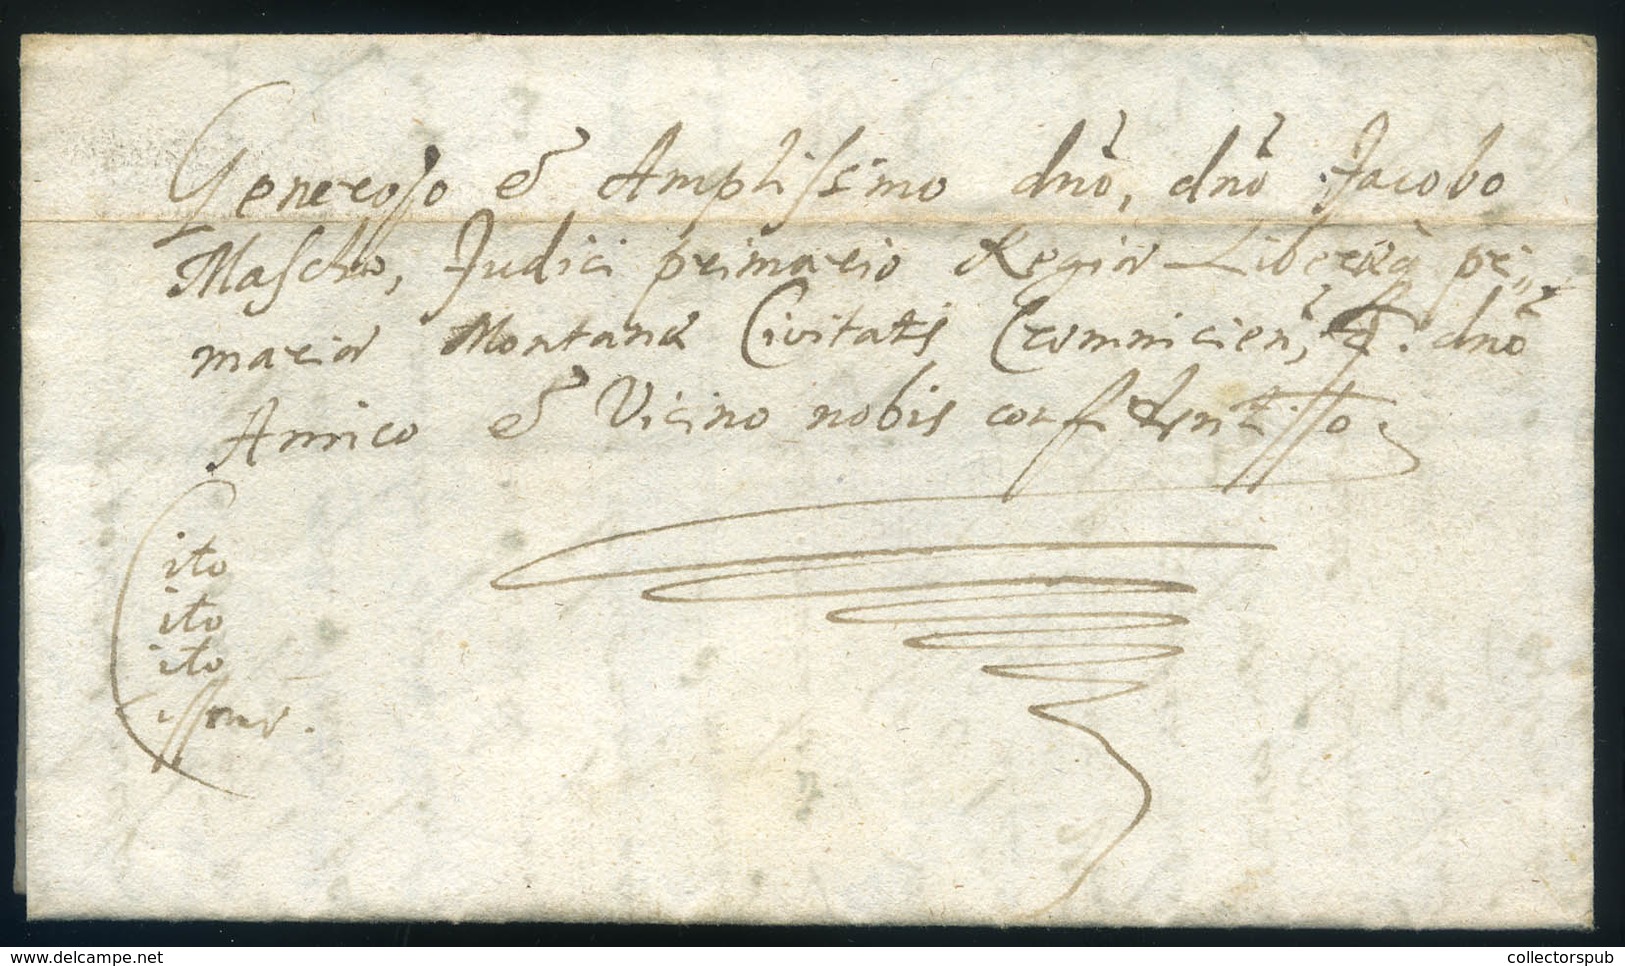 Generoso & Amplissimo dnō, dnō Jacobo
Mascho, Judici primario Regiæ Liberæq pri„
mariæ Montanæ Civitatis Cremnicien, dnō
Amico & Vicino nobis confidentisso.
Cito
ito
ito
issime.
delcampe.net
collectorspub